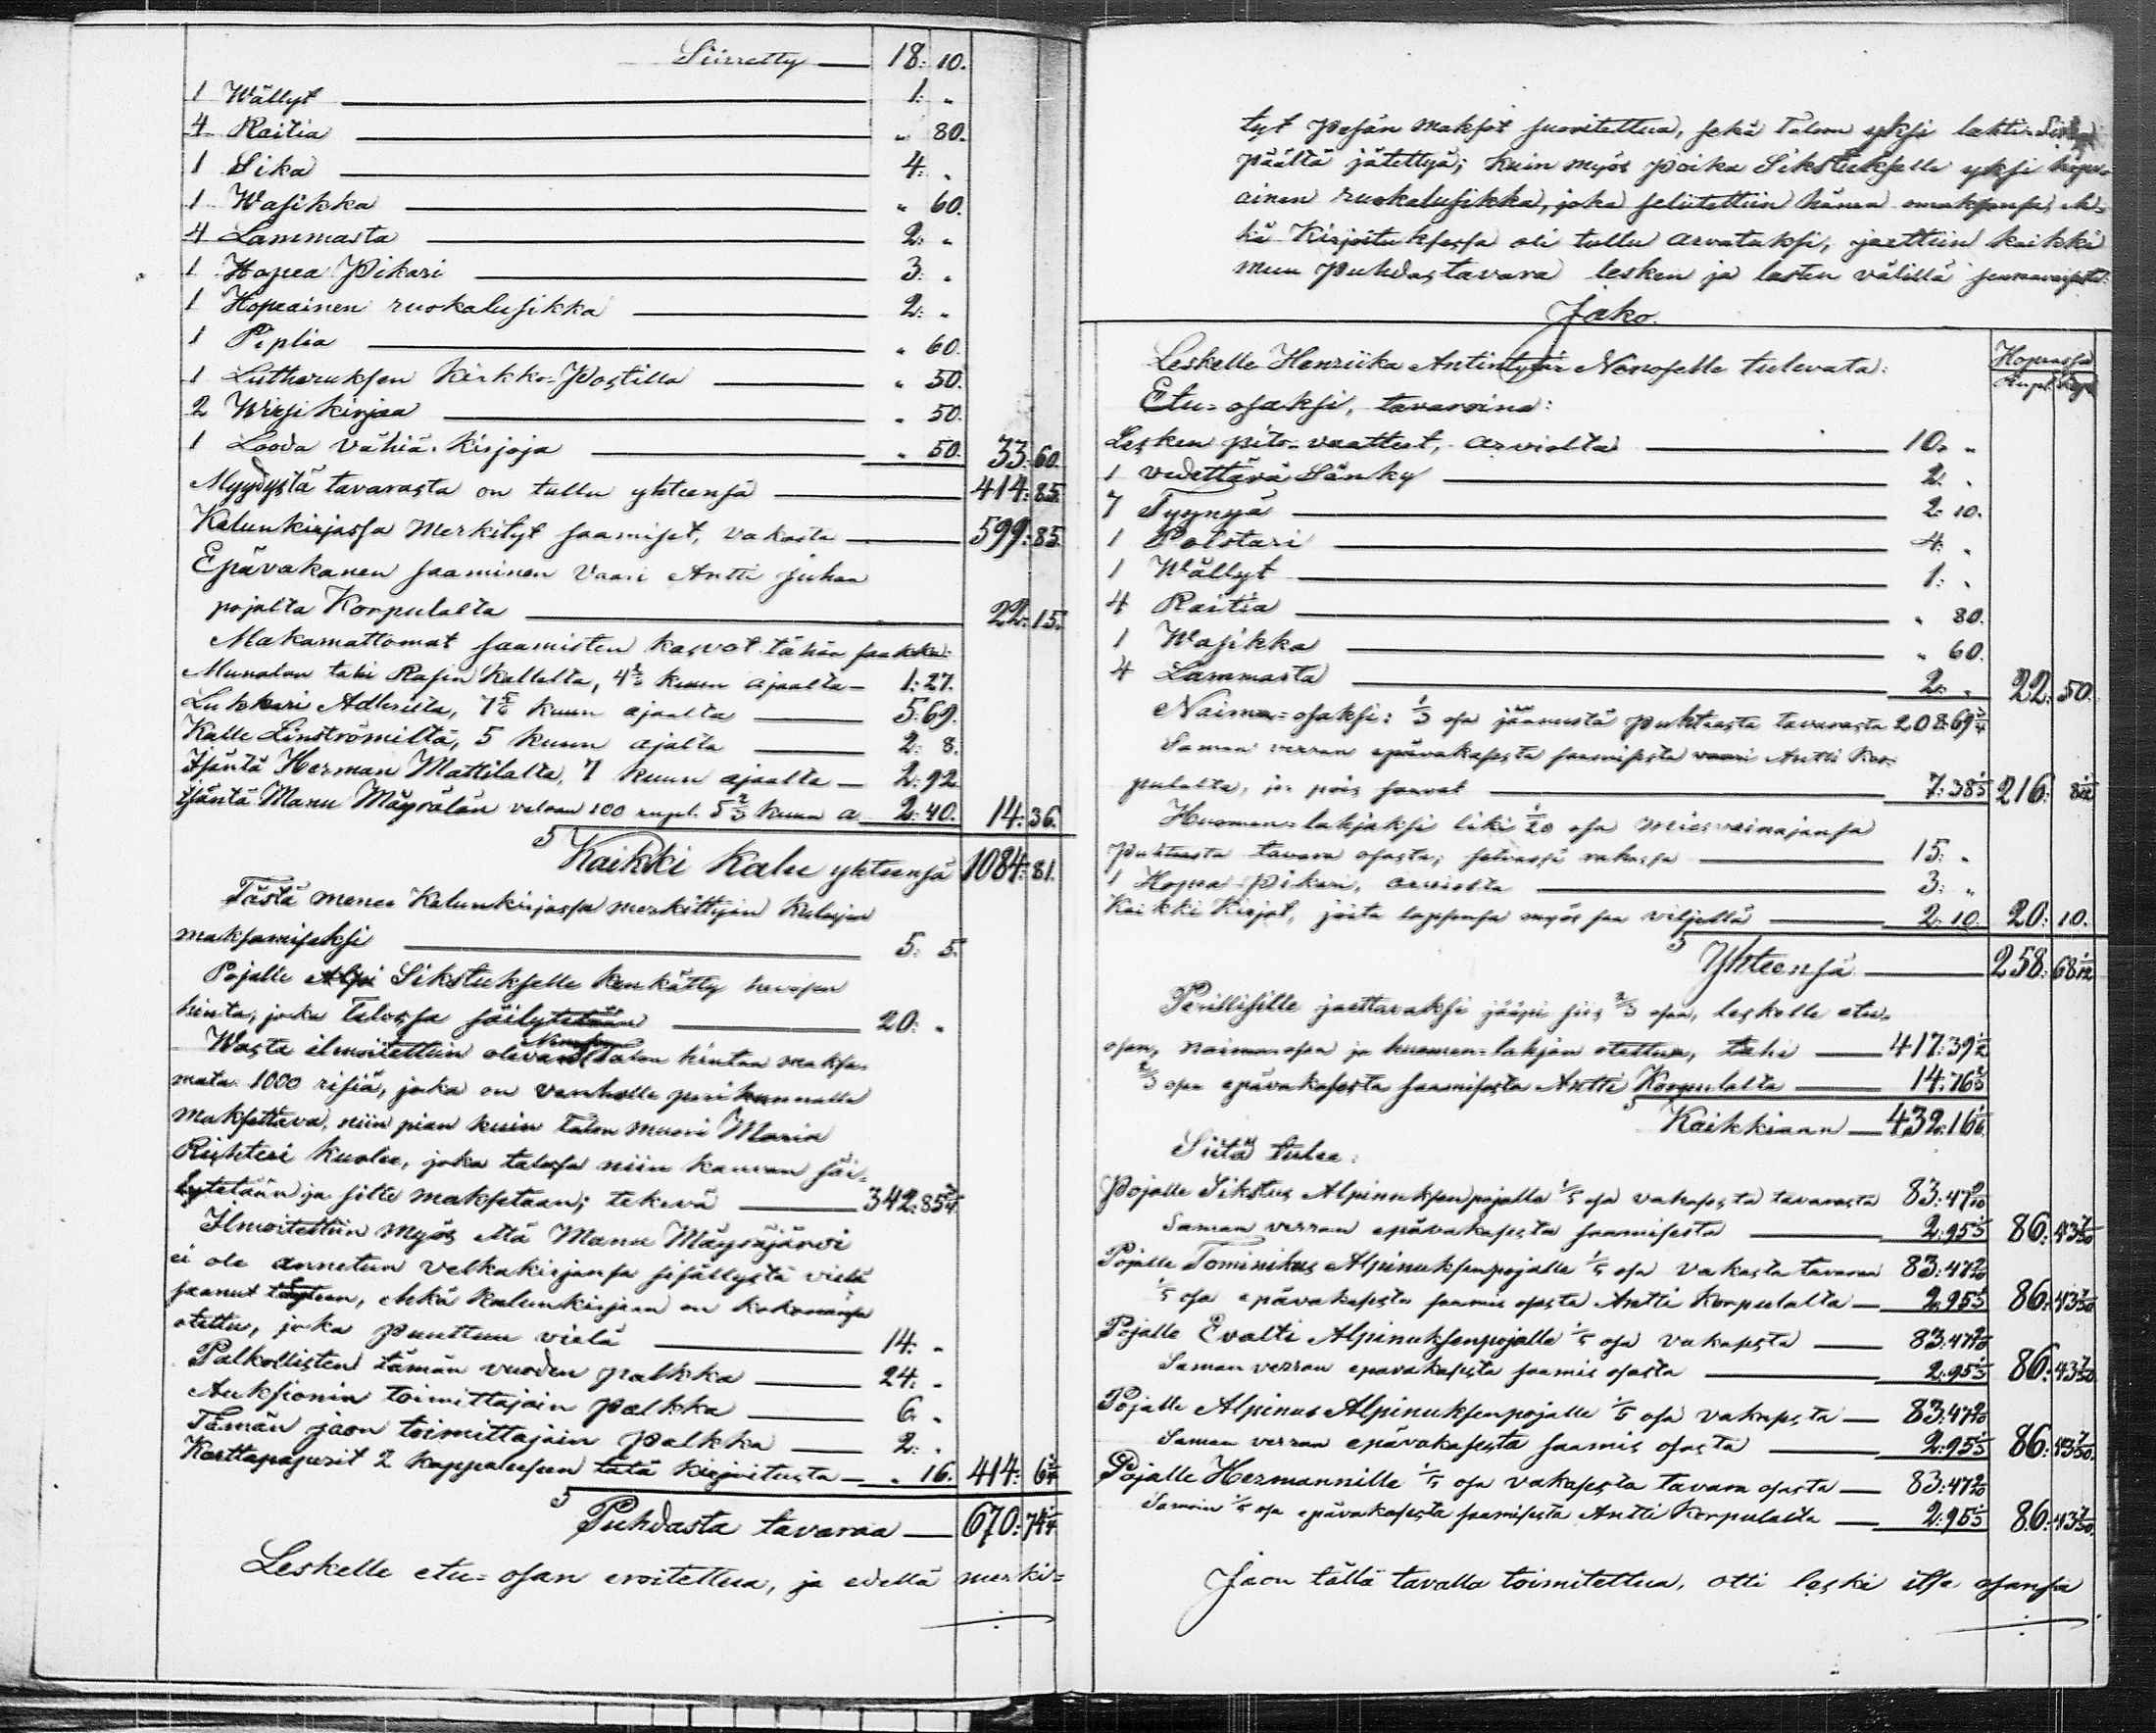 Siirretty — 18: 10.
1 Wällyt — 1: „
4 Raitia — „ 80.
1 Sika — 4: „
1 Wasikka — „ 60.
4 Lammasta — 2: „
1 Hopea Pikari — 3: „
1 Hopeainen ruokalusikka — 2: „
1 Piplia — „ 60.
1 Lutheruksen Kirkko-Postilla — „ 50.
2 Wirsikirjaa — „ 50.
1 Looda vähiä Kirjoja — „ 50. 33: 60.
Myydystä tavarasta on tullu yhteensä — 414: 85.
Kalunkirjassa merkityt saamiset, vakasta — 599: 85.
Epävakanen saaminen Vaari Antti Juhan
pojalta Korpulalta — 22: 15.
Makamattomat saamisten kasvot tähän saakka:
Kallelta, 4⅔ kuun ajaalta — 1: 27.
Lukkari Adlerilta, 7⅚ kuun ajaalta — 5: 69.
Kalle Linströmiltä, 5 kuun ajalta — 2: 8.
Isäntä Herman Mattilalta, 7 kuun ajaalta — 2: 92.
Isäntä Manu Mäyrälän velvan 100 rupl. 5⅔ kuun a — 2: 40. 14: 36.
S Kaikki kalu yhteensä 1084: 81.
Tästä menee Kalunkirjassa merkittyin kulujen
maksamiseksi — 5: 5.
Pojalle Alpi Sikstukselle kenkätty hevosen
hinta, joka talossa säilytetään — 20: „
Wasta ilmoitettiin olevan Talon hintaa maksa-
mata 1000 risiä, joka on vanhalle perikunnalle
maksettava, niin pian kuin talon muori Maria
Rihteri kuolee, joka talossa niin kauvan säi-
lytetään ja sitte maksetaan; tekevä — 342: 85¾
Ilmoitettiin myös että Manu Mäyräjärvi
ei ole annetun velkakirjansa sisällystä vielä
saanut täyteen, ehkä kalunkirjaan on kokonansa
otettu, joka puuttuu vielä — 14: „
Palkollisten tämän vuoden palkka — 24: „
Auksionin toimittajain palkka — 6: „
Tämän jaon toimittajain palkka — 2: „
Karttapaperit 2 kappaleesen tätä kirjoitusta — „ 16. 414: 6¾
S Puhdasta tavaraa — 670: 74¼
Leskelle etu-osan eroitettua, ja edellä merki-
tyt pesän maksot suoritettua, sekä Talon yksi lahti
päältä jätettyä; kuin myös poika Sikstukselle yksi hope-
ainen ruokalusikka, joka selitettiin hänen omaksensa, eh-
kä Kirjoituksessa oli tullu arvatuksi, jaettiin kaikki
muu puhdas tavara lesken ja lasten välillä
Jako.
Hopeassa
Rupl. Kop.
Leskelle Henriika Antintytär Nanoselle tulevata:
Etu-osaksi, tavaroina:
Lesken pito-vaatteet, arviolta — 10: „
1 vedettävä Sänky — 2: „
7 Tyynyä — 2: 10.
1 Polstari — 4: „
1 Wällyt — 1: „
4 Raitia — „ 80.
1 Wasikka — „ 60.
4 Lammasta — 2: „ 22: 50.
Naima-osaksi: ⅓ osa jäänystä puhtaasta tavarasta 208: 69¾
Saman verran epävakasesta saamisesta vaari Antti Kor-
pulalta, jos pois saavat — 7: 38⅓ 216: 8 1/12
Huomen-lahjaksi liki 1/20 osa miesvainajansa
puhtaasta tavara osasta; selvassa rahassa — 15: „
1 Hopea-Pikari, arviolta — 3: „
Kaikki Kirjat, joita lapsensa myös saa viljellä — 2: 10. 20: 10.
S Yhteensä — 258: 68 1/12
Perillisille jaettavaksi jääpi siis ⅔ osaa, leskelle etu-
osan, naima-osan ja huomen-lahjan otettua, tahi — 417: 39½
⅔ osa epävakasesta saamisesta Antti Korpulalta — 14: 76⅔
S Kaikkiaan — 432: 16⅙
Siitä tulee:
Pojalle Sikstus Alpinuksenpojalle ⅕ osa vakasesta tavarasta 83: 47 9/10
Saman verran epävakasesta saamisesta — 2: 95⅓ 86: 43 7/30
Pojalle Tominikus Alpinuksenpojalle ⅕ osa vakasta tavaraa 83: 47 9/10
⅕ osa epävakasesta saamis osasta Antti Korpulalta — 2: 95⅓ 86: 43 7/30
Pojalle Evalti Alpinuksenpojalle ⅕ osa vakasesta — 83: 47 9/10
Saman verran epävakasesta saamis osasta — 2: 95⅓ 86: 43 7/30
Pojalle Alpinus Alpinuksenpojalle ⅕ osa vakasesta — 83: 47 9/10
Saman verran epävakasesta saamis osasta — 2: 95⅓ 86: 43 7/30
Pojalle Hermannille ⅕ osa vakasesta tavara osasta — 83: 47 9/10
Samoin ⅕ osa epävakasesta saamisesta Antti Korpulalta — 2: 95⅓ 86: 43 7/30
Jaon tällä tavalla toimitettua, otti leski itse osansa